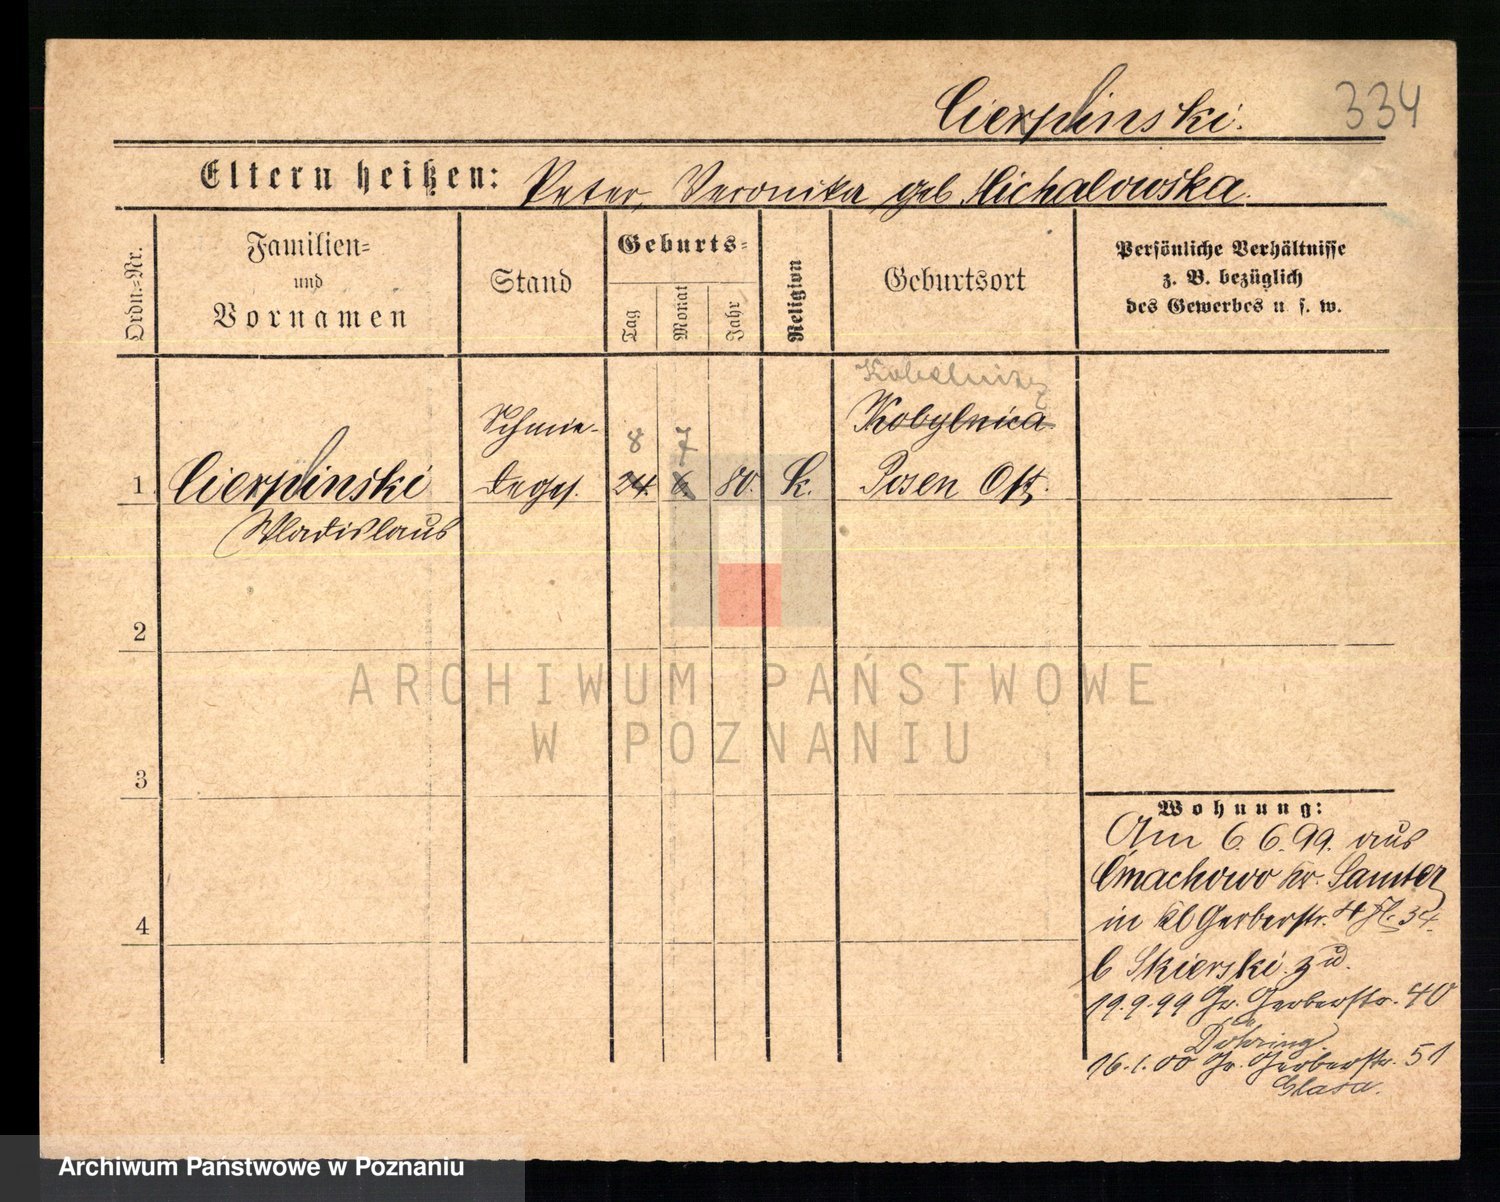 Cierpinski. 334
Eltern heißen: Peter, Veronika geb Michalowska.
Ordn.=Nr.
Familien=
und
Vornamen
Stand
Geburts=
Tag
Monat
Jahr
Religion
Geburtsort
Persönliche Verhältnisse
z. B. bezüglich
des Gewerbes u. s. w.
Kobylnica
Schmie-
8 7
1 Cierpinski deges. 24. 6. 80. k. Posen Ost.
Wladislaus
2
3
4
Wohnung:
Am 6. 6. 99. aus
Cmachowo Kr. Samter
in Kl Gerberstr. 4
b Skierski zu.
19.9.99 Gr. Gerberstr. 40
Döhring.
16.1.00 Gr. Gerberstr. 51
Glasa.
ARCHIWUM PAŃSTWOWE
W POZNANIU
Archiwum Państwowe w Poznaniu